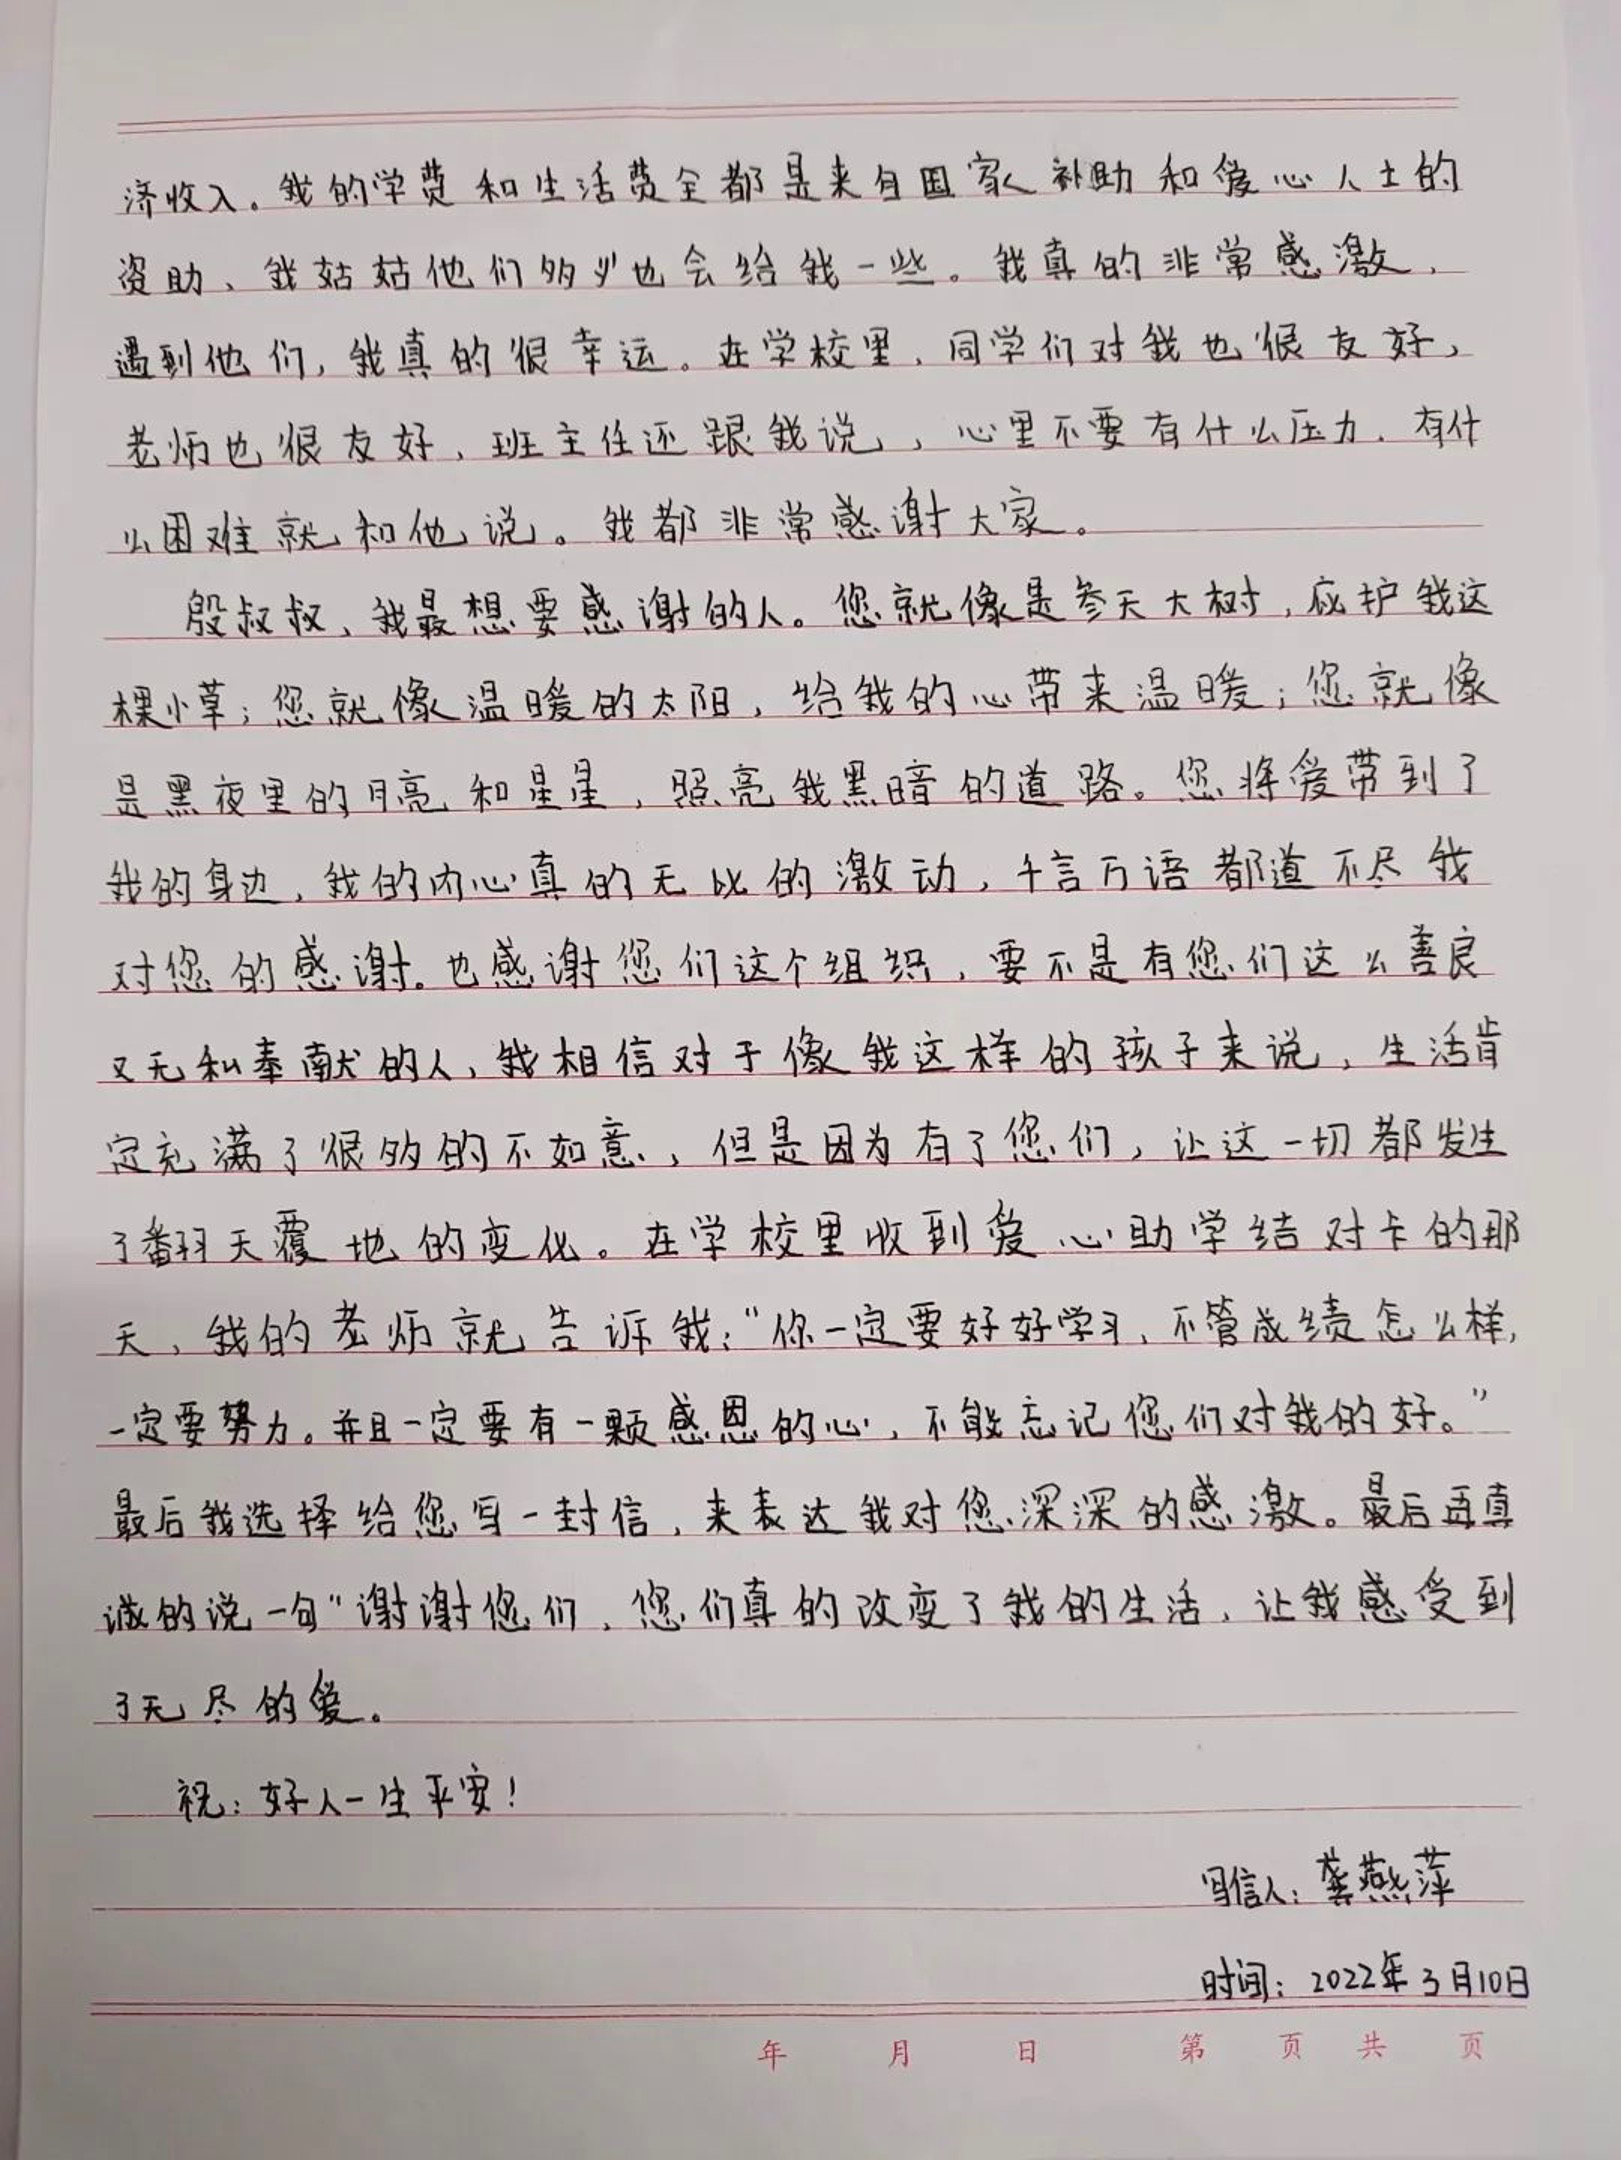 济收入。我的学费和生活费全都是来自国家补助和爱心人士的
资助、我姑姑他们多少也会给我一些。我真的非常感激，
遇到他们，我真的很幸运。在学校里，同学们对我也很友好，
老师也很友好，班主任还跟我说，，心里不要有什么压力．有什
么困难就和他说。我都非常感谢大家。
殷叔叔、我最想要感谢的人。您就像是参天大树，庇护我这
棵小草；您就像温暖的太阳，给我的心带来温暖；您就像
是黑夜里的月亮和星星，照亮我黑暗的道路。您将爱带到了
我的身边，我的内心真的无比的激动，千言万语都道不尽我
对您的感谢。也感谢您们这个组织，要不是有您们这么善良
又无私奉献的人，我相信对于像我这样的孩子来说，生活肯
定充满了很多的不如意，但是因为有了您们，让这一切都发生
了翻天覆地的变化。在学校里收到爱心助学结对卡的那
天，我的老师就告诉我：“你一定要好好学习，不管成绩怎么样，
一定要努力。并且一定要有一颗感恩的心，不能忘记您们对我的好。”
最后我选择给您写一封信，来表达我对您深深的感激。最后再真
诚的说一句“谢谢您们，您们真的改变了我的生活，让我感受到
了无尽的爱。
祝：好人一生平安！
写信人：龚燕萍
时间：2022年3月10日
年 月 日 第 页 共 页